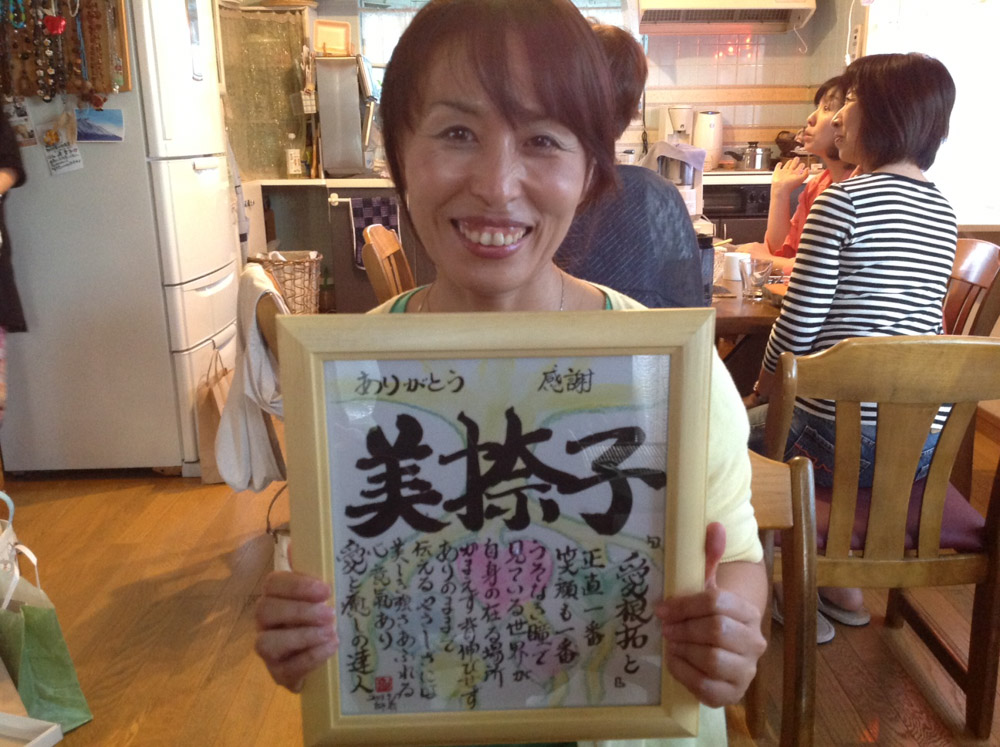 ありがとう 感謝
美捺子
愛根拓と
正直一番
笑顔も一番
うそなき瞳で
見ている世界が
自身の在る場所
かまえず背伸びせず
ありのままで
伝えるやさしさには
美しき強さあふれる
心意氣あり
愛と癒しの達人